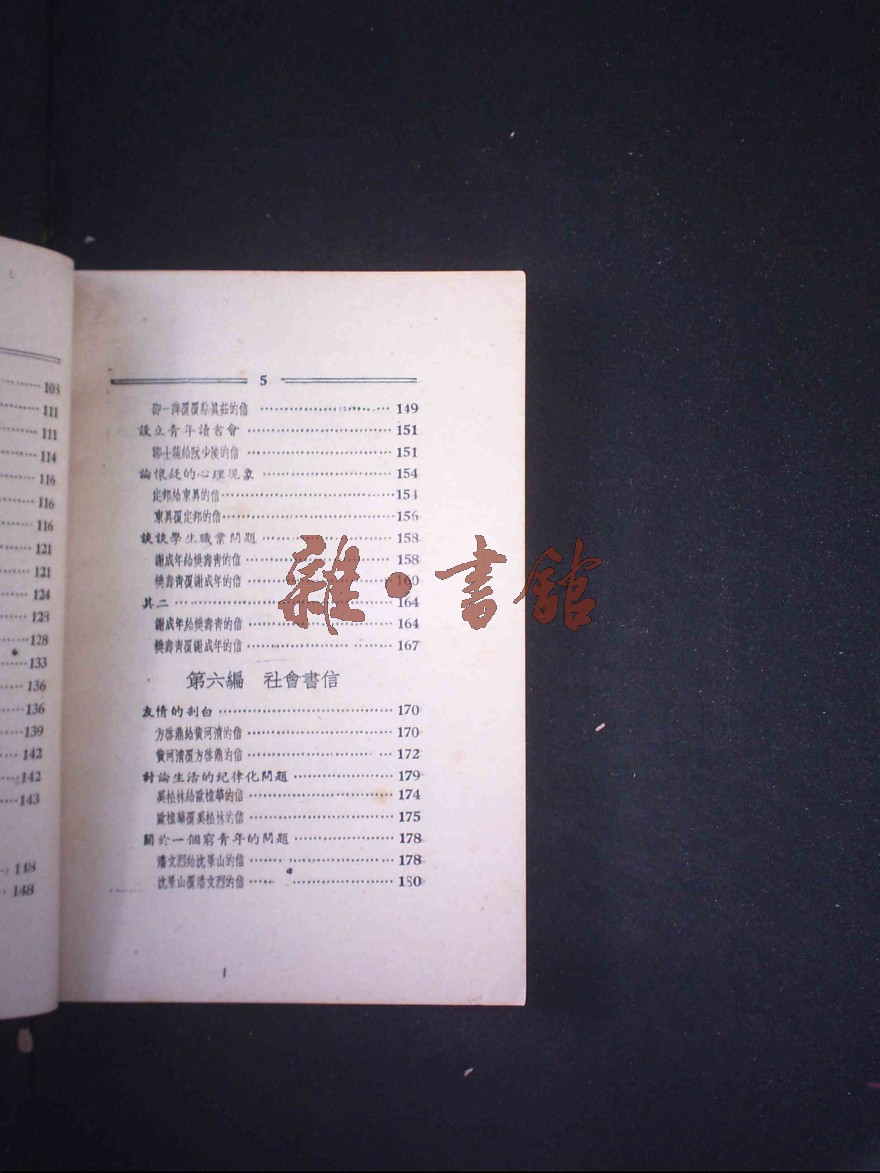 103
111
111
114
116
116
116
121
121
124
128
128
133
136
136
139
142
142
143
148
148
5
的信 149
設立青年讀書會 151
給阮少陵的信 151
論懷疑的心理現象 154
定邦給東昇的信 154
東昇覆定邦的信 156
談談學生職業問題 158
謝成年給樊壽青的信 158
樊壽青覆謝成年的信 160
其二 164
謝成年給樊壽青的信 164
樊壽青覆謝成年的信 167
第六編 社會書信
友情的剖白 170
方啓鼎給黄河清的信 170
黄河清覆方啓鼎的信 172
討論生活的紀律化問題 179
奚松林給歐棣華的信 174
歐棣華覆奚松林的信 175
關於一個窮青年的問題 178
潘文烈給沈翠山的信 178
沈翠山覆潘文烈的信 180
雜·書館